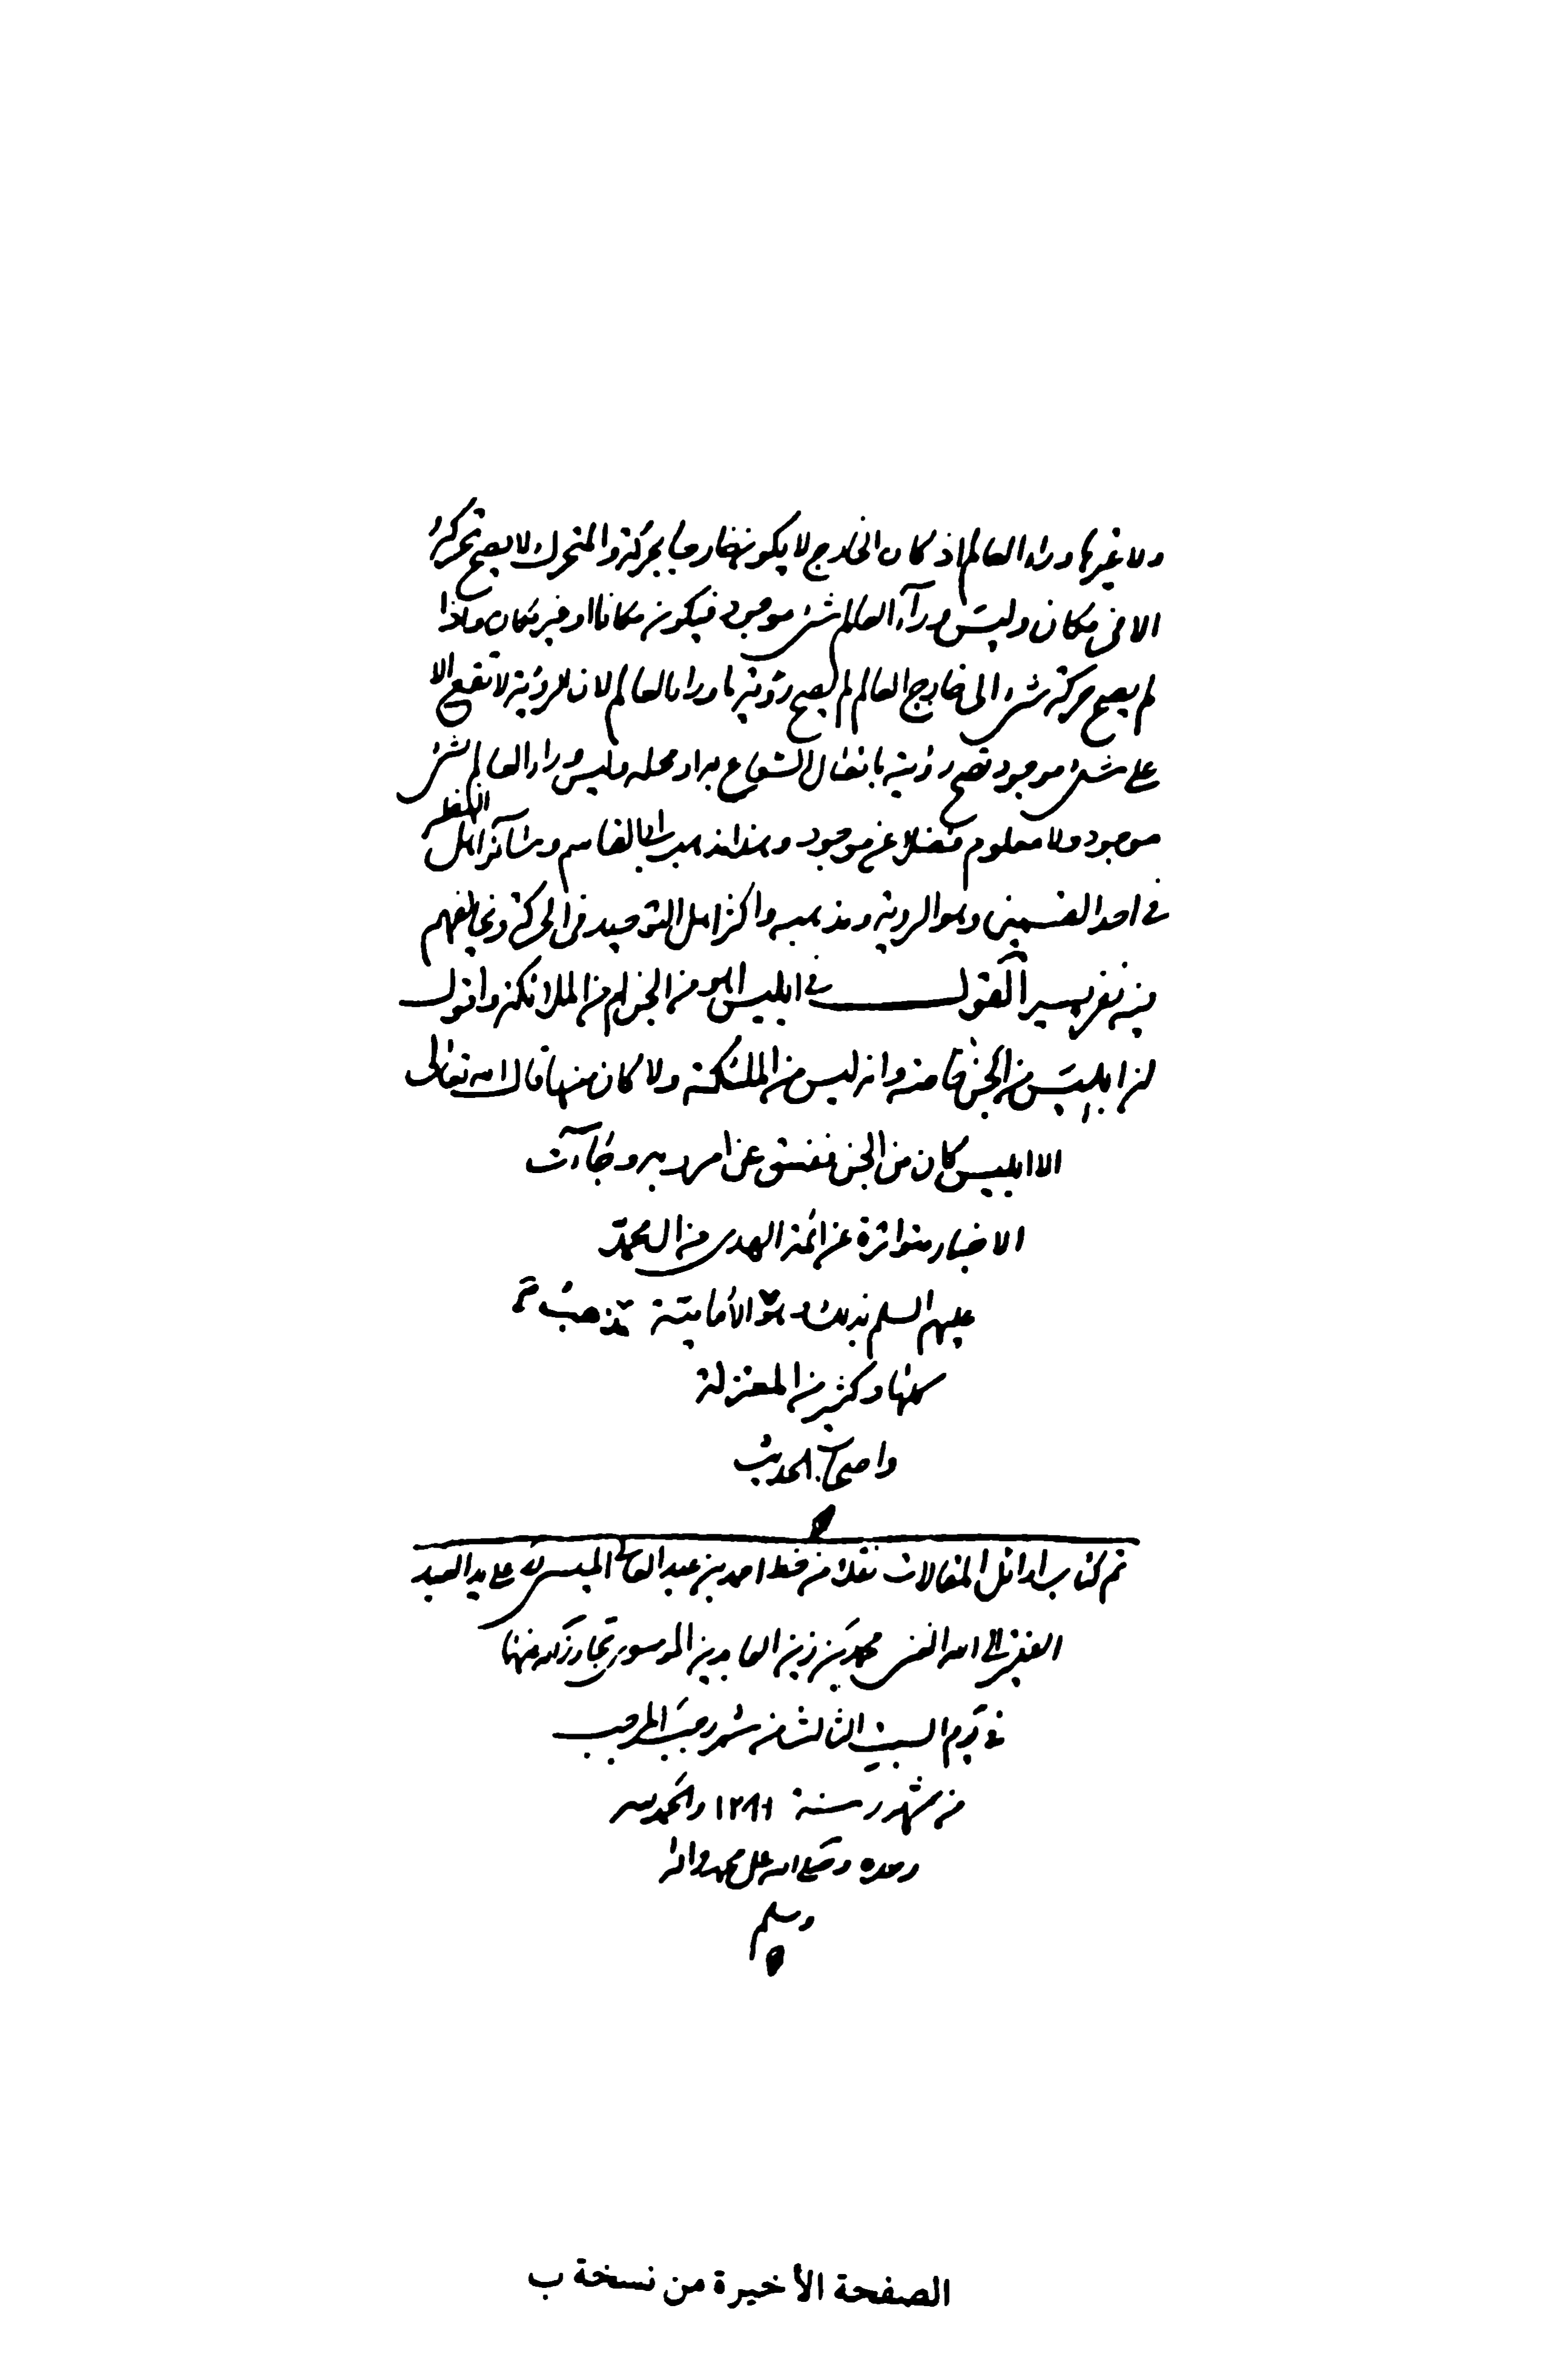 ولا غيرها وراء العالم اذ كان الخارج لا يكون خارجا بحركة والمتحرك لا يصح تحركه
الا في مكان وليس وراء العالم شئ موجود فيكون مكانا او غير مكان واذا
لم يصح حركة شئ الى خارج العالم لم يصح رؤية ما وراء العالم لان الرؤية لا تقع الا
على شئ موجود تصح رؤيته باتصال الشعاع به او محله وليس وراء العالم شئ
موجود ولا معلوم فضلا عن موجود وهذا مذهب ابى القاسم وسائر اهل النظر
في احد القسمين وهو الرؤية ومذهبه واكثر اهل التوحيد في الحركة ويخالفهم
فيه نفر يسير القول في ابليس اهو من الجن ام من الملائكة واقول
ان ابليس من الجن خاصة وانه ليس من الملئكة ولا كان منها قال الله تعالى
الا ابليس كان من الجن ففسق عن امر ربه وجاءت
الاخبار متواترة عن ائمة الهدى من ال محمد
عليهم السلم بذلك وهو مذهب الامامية
كلها وكثير من المعتزلة
واصحاب الحديث
تم كتاب اوائل المقالات نقلا من خط احمد بن عبد العالي الميسي على يد العبد
الفقير الى الله الغني محمد بن زين العابدين الموسوي تجاوز الله عنهما
في يوم السبت الثالث من شهر رجب المرجب
من شهور سنة والحمد لله
وحده وصلى الله على محمد واله
وسلم
الصفحة الأخيرة من نسخة ب